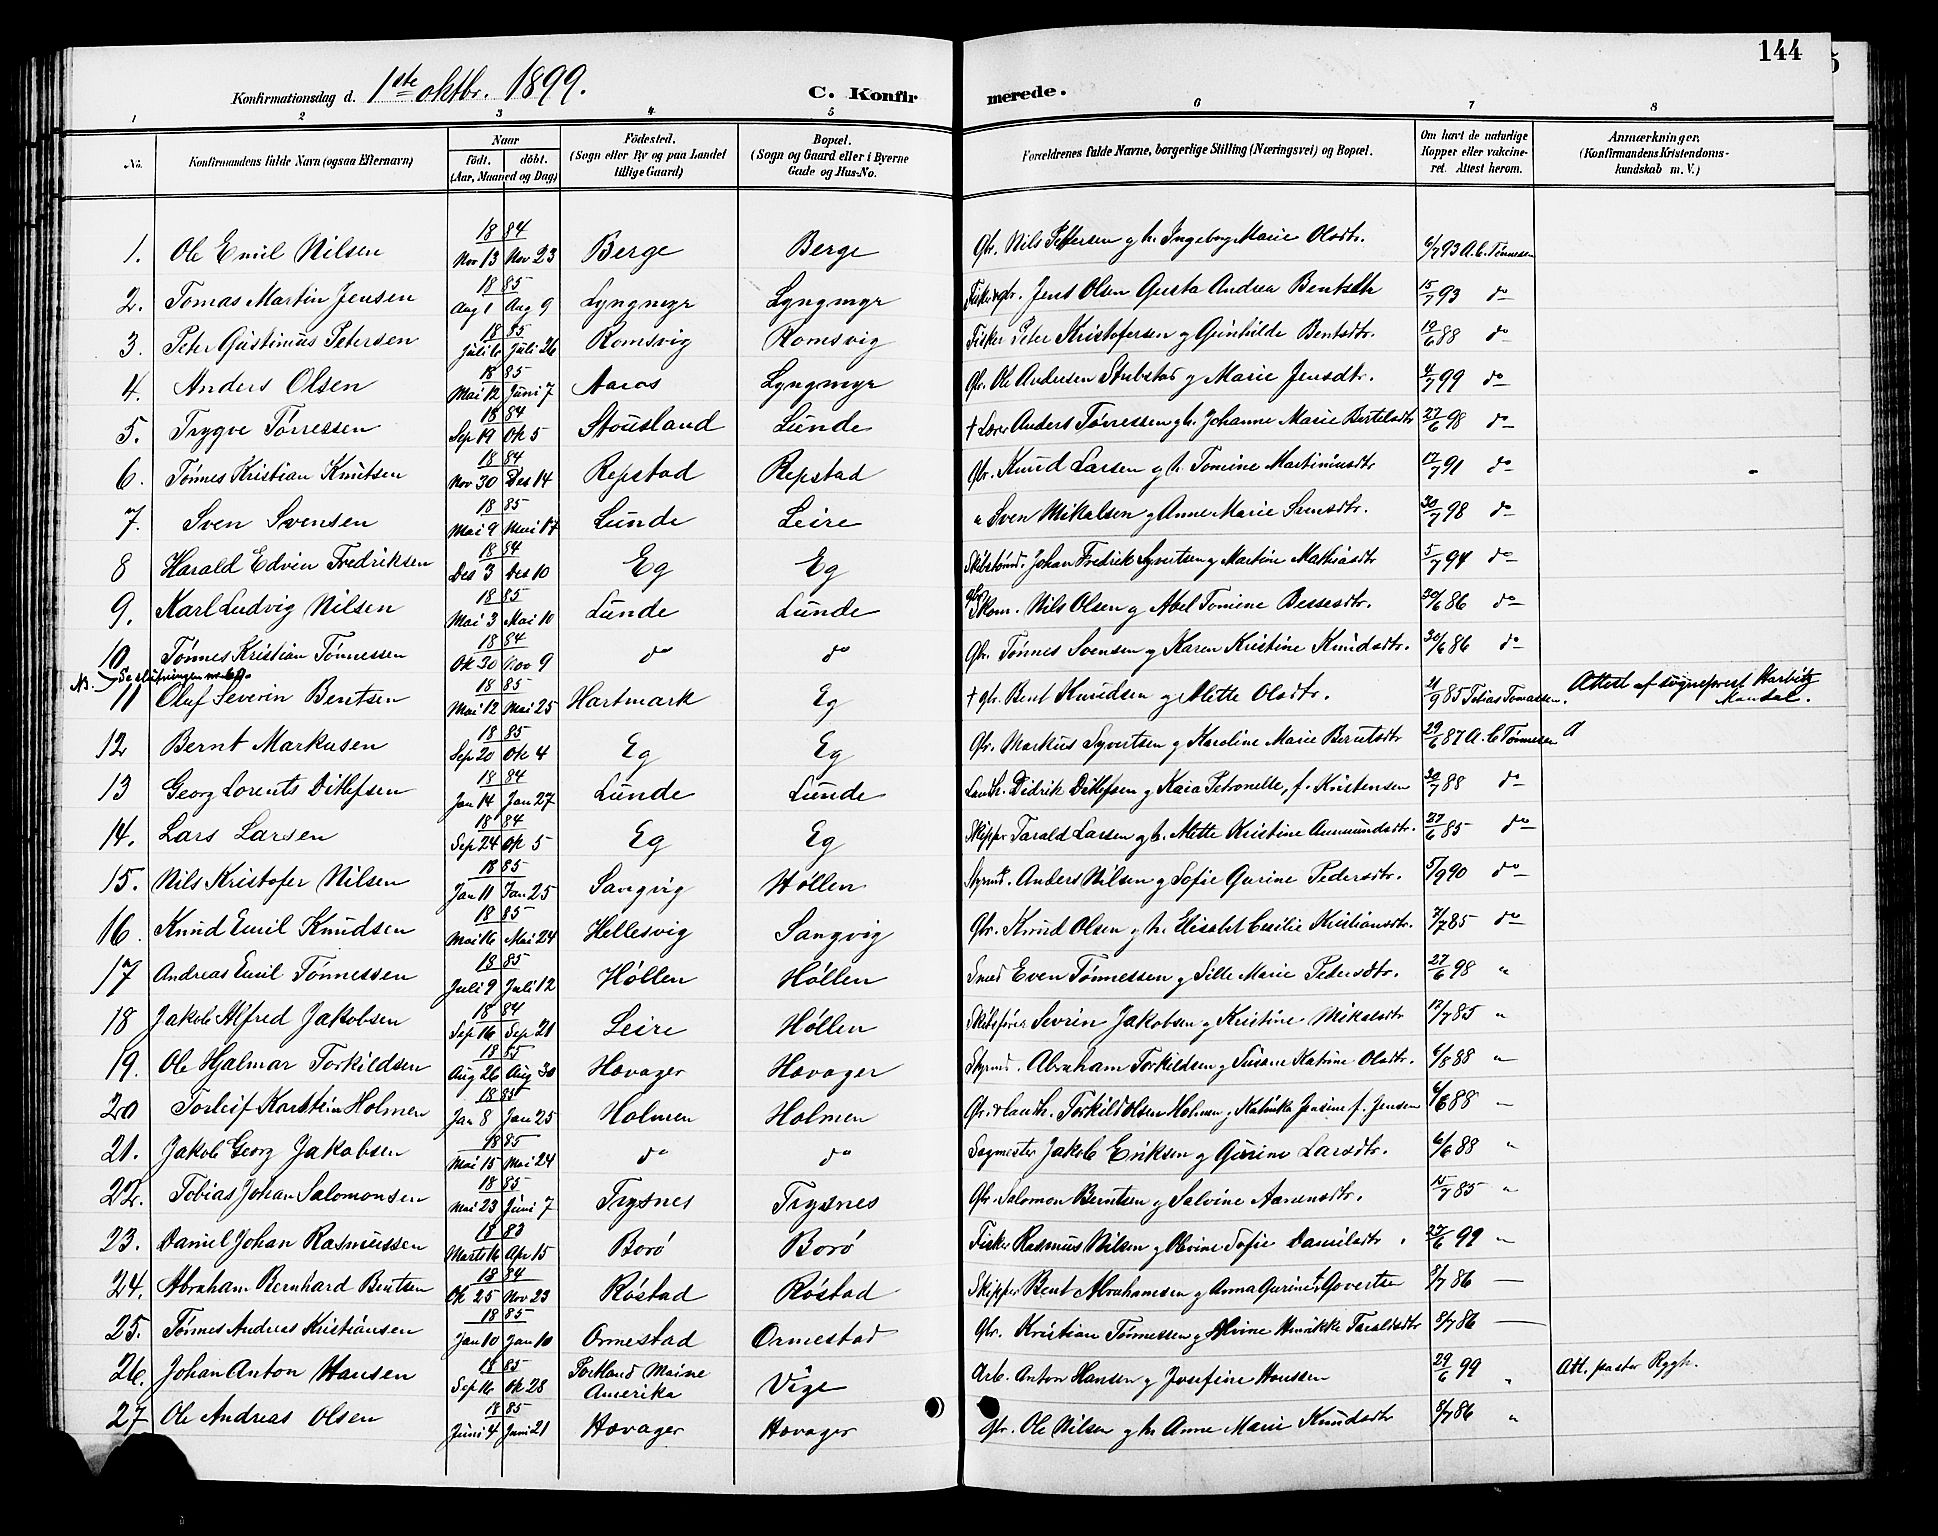 144
Konfirmationsdag d. 1ste oktbr. 1899. C. Konfirmerede.
1 2 3 4 5 6 7 8
No. Konfirmandens fulde Navn (ogsaa Efternavn) Naar födt. döbt. (Aar, Maaned og Dag) Födested. (Sogn eller By og paa Landet tillige Gaard) Bopæl. (Sogn og Gaard eller i Byerne Gade og Hus-No. Forældrenes fulde Navne, borgerlige Stilling (Næringsvei) og Bopæl. Om havt de naturlige Kopper eller vakcineret. Attest herom. Anmærkninger. (Konfirmandens Kristendomskundskab m. V.)
1. Ole Emil Nilsen 1884 Nov 13 Nov 23 Berge Berge Gbr. Nils Pettersen g h. Ingeborg Marie Olsdtr. 6/7 93 A. C. Tønnesen
2. Tomas Martin Jensen 1885 Aug 1 Aug 9 Lyngmyr Lyngmyr Jens Olsen Gusta Andrea Bentsdtr 15/7 93 do
3. Peter Gustinius Petersen 1885 Juli 6 Juli 26 Romsvig Romsvig Fisker Peter Kristofersen g Gunhilde Bentsdtr. 19/6 88 do
4. Anders Olsen 1885 Mai 12 Juni 7 Aaros Lyngmyr Gbr. Ole Andersen Stubstad g Marie Jensdtr. 4/7 99 do
5. Trygve Tørressen 1884 Sep 19 Ok 5 Stousland Lunde † Lærer Anders Tørressen g h. Johanne Marie Bertelsdtr 27/6 98 do
6. Tønnes Kristian Knutsen 1884 Nov 30 Des 14 Repstad Repstad Gbr. Knud Larsen g h. Tomine Martiniusdtr 17/7 91 do
7. Sven Svensen 1885 Mai 9 Mai 17 Lunde Leire " Sven Mikalsen g Anne Marie Svensdtr. 30/7 98 do
8 Harald Edvin Fredriksen 1884 Des 3 Des 10 Eg Eg Johan Fredrik Syvertsen g Martine Mathiasdtr 5/7 94 do
9. Karl Ludvig Nilsen 1885 Mai 3 Mai 10 Lunde Lunde Skom. Nils Olsen g Abel Tomine Bessesdtr. 30/6 86 do
10 Tønnes Kristian Tønnessen 1884 Ok 30 Nov 9 do do Gbr. Tønnes Svensen g Karen Kristine Knudsdtr. 30/6 86 do
NB.
11 Oluf Severin Bentsen 1885 Mai 12 Mai 25 Hartmark Eg † gbr. Bent Knudsen g Mette Olsdtr. 21/9 85 Tobias Tomassen. Attest af sogneprest Harbitz Mandal.
12 Bernt Markusen 1885 Sep 20 Ok 4 Eg Eg Gbr. Markus Syvertsen g Karoline Marie Berntsdtr 29/6 87 A. C. Tønnesen
13 Georg Lorents Ditlefsen 1884 Jan 14 Jan 27 Lunde Lunde Landh. Didrik Ditlefsen g Kaia Petronelle, f. Kristensen 30/7 88 do
14. Lars Larsen 1884 Sep 24 Ok 5 Eg Eg Skipper Tarald Larsen g h. Mette Kristine Aanmundsdtr. 27/6 85 do
15. Nils Kristofer Nilsen 1885 Jan 11 Jan 25 Sangvig Høllen Styrmd. Anders Nilsen g Sofie Gurine Pedersdtr. 5/9 90 do
16. Knud Emil Knudsen 1885 Mai 16 Mai 24 Hellesvig Sangvig Gbr. Knud Olsen g h. Elisabet Cecilie Kristiansdtr. 7/7 85 do
17 Andreas Emil Tønnessen 1885 Juli 9 Juli 12 Høllen Høllen Smed Even Tønnessen g Sille Marie Pedersdtr. 27/6 98 "
18 Jakob Alfred Jakobsen 1884 Sep 16 Sep 21 Leire Høllen Skibsfører Sevrin Jakobsen g Kristine Mikalsdtr 12/7 85 "
19. Ole Hjalmar Torkildsen 1885 Aug 26 Aug 30 Havager Havager Styrmd. Abraham Torkildsen g Susane Katrine Olsdtr. 6/8 88 "
20 Torleif Karstein Holmen 1885 Jan 8 Jan 25 Holmen Holmen Gbr. & landh. Torkild Olsen Holmen g Katinka Jensine f. Jensen 6/6 88 "
21. Jakob Georg Jakobsen 1885 Mai 15 Mai 24 do do Sagmester Jakob Eriksen g Gurine Larsdtr. 6/6 88 "
22. Tobias Johan Salomonsen 1885 Mai 23 Juni 7 Trysnes Trysnes Gbr. Salomon Berntsen g Salvine Aanensdtr. 15/7 85 "
23. Daniel Johan Rasmussen 1883 Marts 16 Apr 15 Borø Borø Fisker Rasmus Nilsen g Olevine Sofie Danielsdtr. 27/6 99 "
24. Abraham Bernhard Bentsen 1884 Ok 25 Nov 23 Røstad Røstad Skipper Bent Abrahamsen g Anna Gurine f. Govertsen 8/7 86 —
25. Tønnes Andreas Kristiansen 1885 Jan 10 Jan 10 Ormestad Ormestad Gbr. Kristian Tønnessen g Elvine Henrikke Taraldsdtr 8/7 86 —
26. Johan Anton Hansen 1885 Sep 16 Ok 28 Portland Maine Amerika Vige Arb. Anton Hansen g Josefine Hanssen 29/6 99 " Att. pastor Rygh.
27 Ole Andreas Olsen 1885 Juni 4 Juni 21 Havager Havager Gbr. Ole Nilsen g h. Anne Marie Knudsdtr 8/7 86 "